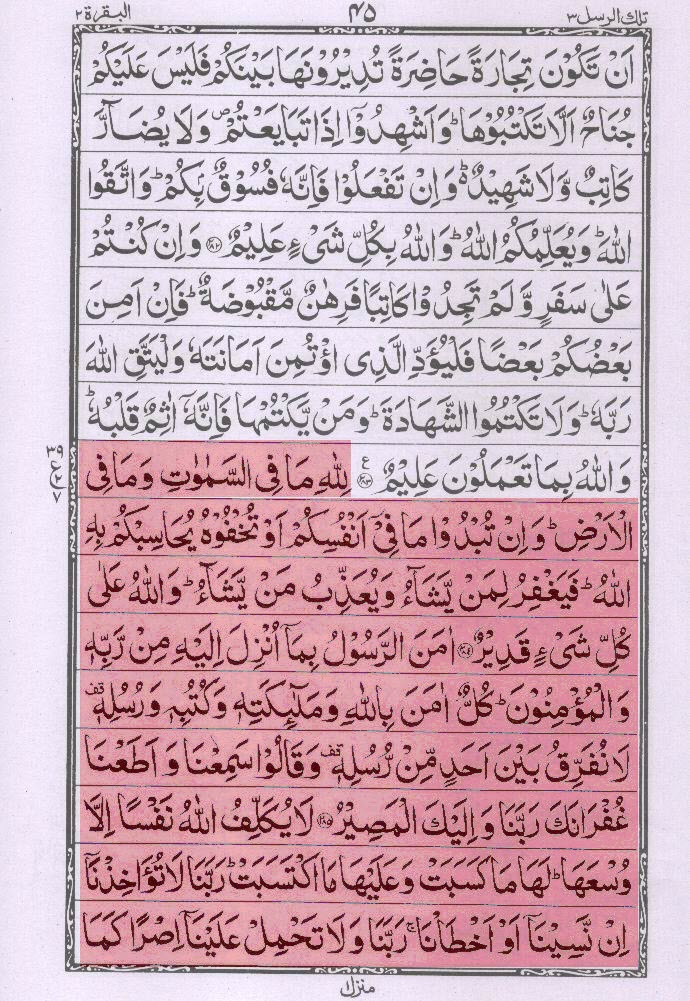 تلك الرسل ٣ ٤٥ البقرة ٢
اَنْ تَكُوْنَ تِجَارَةً حَاضِرَةً تُدِيْرُوْنَهَا بَيْنَكُمْ فَلَيْسَ عَلَيْكُمْ
جُنَاحٌ اَلَّا تَكْتُبُوْهَا ؕ وَاَشْهِدُوْۤا اِذَا تَبَايَعْتُمْ ۪ وَلَا يُضَآرَّ
كَاتِبٌ وَّلَا شَهِيْدٌ ؕ۬ وَاِنْ تَفْعَلُوْا فَاِنَّهٗ فُسُوْقٌۢ بِكُمْ ؕ وَاتَّقُوا
اللّٰهَ ؕ وَيُعَلِّمُكُمُ اللّٰهُ ؕ وَاللّٰهُ بِكُلِّ شَىْءٍ عَلِيْمٌ ﴿۲۸۲﴾ وَاِنْ كُنْتُمْ
عَلٰى سَفَرٍ وَّلَمْ تَجِدُوْا كَاتِبًا فَرِهٰنٌ مَّقْبُوْضَةٌ ؕ فَاِنْ اَمِنَ
بَعْضُكُمْ بَعْضًا فَلْيُؤَدِّ الَّذِى اؤْتُمِنَ اَمَانَتَهٗ وَلْيَتَّقِ اللّٰهَ
رَبَّهٗ ؕ وَلَا تَكْتُمُوا الشَّهَادَةَ ؕ وَمَنْ يَّكْتُمْهَا فَاِنَّهٗۤ اٰثِمٌ قَلْبُهٗ ؕ
وَاللّٰهُ بِمَا تَعْمَلُوْنَ عَلِيْمٌ ﴿۲۸۳﴾ ع لِلّٰهِ مَا فِى السَّمٰوٰتِ وَمَا فِى
٣٩
ع
٧
الْاَرْضِ ؕ وَاِنْ تُبْدُوْا مَا فِىْۤ اَنْفُسِكُمْ اَوْ تُخْفُوْهُ يُحَاسِبْكُمْ بِهِ
اللّٰهُ ؕ فَيَغْفِرُ لِمَنْ يَّشَآءُ وَيُعَذِّبُ مَنْ يَّشَآءُ ؕ وَاللّٰهُ عَلٰى
كُلِّ شَىْءٍ قَدِيْرٌ ﴿۲۸۴﴾ اٰمَنَ الرَّسُوْلُ بِمَاۤ اُنْزِلَ اِلَيْهِ مِنْ رَّبِّهٖ
وَالْمُؤْمِنُوْنَ ؕ كُلٌّ اٰمَنَ بِاللّٰهِ وَمَلٰٓئِكَتِهٖ وَكُتُبِهٖ وَرُسُلِهٖ قف
لَا نُفَرِّقُ بَيْنَ اَحَدٍ مِّنْ رُّسُلِهٖ قف وَقَالُوْا سَمِعْنَا وَاَطَعْنَا
غُفْرَانَكَ رَبَّنَا وَاِلَيْكَ الْمَصِيْرُ ﴿۲۸۵﴾ لَا يُكَلِّفُ اللّٰهُ نَفْسًا اِلَّا
وُسْعَهَا ؕ لَهَا مَا كَسَبَتْ وَعَلَيْهَا مَا اكْتَسَبَتْ ؕ رَبَّنَا لَا تُؤَاخِذْنَاۤ
اِنْ نَّسِيْنَاۤ اَوْ اَخْطَاْنَا ۚ رَبَّنَا وَلَا تَحْمِلْ عَلَيْنَاۤ اِصْرًا كَمَا
منزل